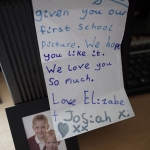 given you our
first school
picture. We hope
you like it.
We love you
so much.
Love Elizabe
+ Josiah x.
xx